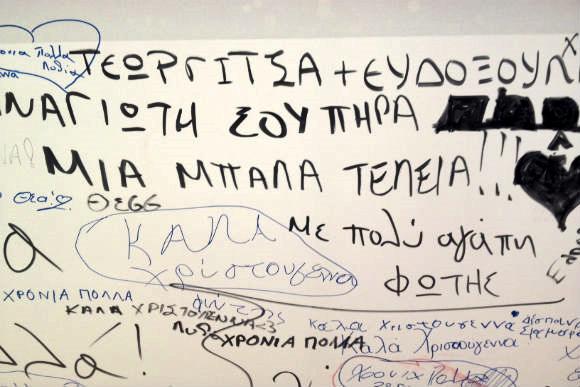 ΧΡΟΝΙΑ ΠΟΛΛΑ
ΤΕΩΡΓΙΤΣΑ + ΕΥΔΟΞΟΥΛ
ΝΑΓΙΩΤΗ ΣΟΥ ΠΗΡΑ
ΜΙΑ ΜΠΑΛΑ ΤΕΛΕΙΑ!!!
ΘΕΣΣ
ΚΑΛΑ
Χρίστουγεννα
Με πολύ αγάπη
ΦΩΤΗΣ
ΧΡΟΝΙΑ ΠΟΛΛΑ
ΚΑΛΑ ΧΡΙΣΤΟΥΓΕΝΝΑ <3
ΧΡΟΝΙΑ ΠΟΛΛΑ
Καλα Χριστουγεννα
Καλά Χρισουγεννα